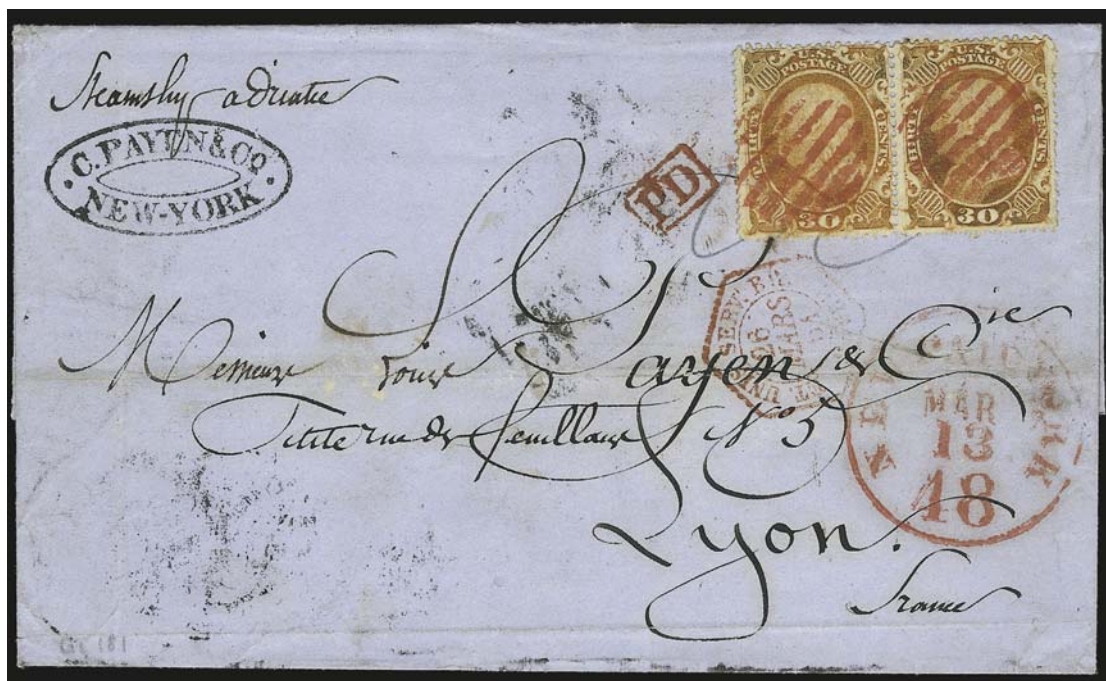 Steamship adriatic
C. PAYEN & Co
NEW-YORK
PD
U.S. POSTAGE
THIRTY CENTS
30
U.S. POSTAGE
THIRTY CENTS
30
SERV. 
26 MARS
NEW YORK
PAID
MAR
13
48
Messieurs Louis Payen & Cie
Petite rue des feuillans No 5
Lyon.
France